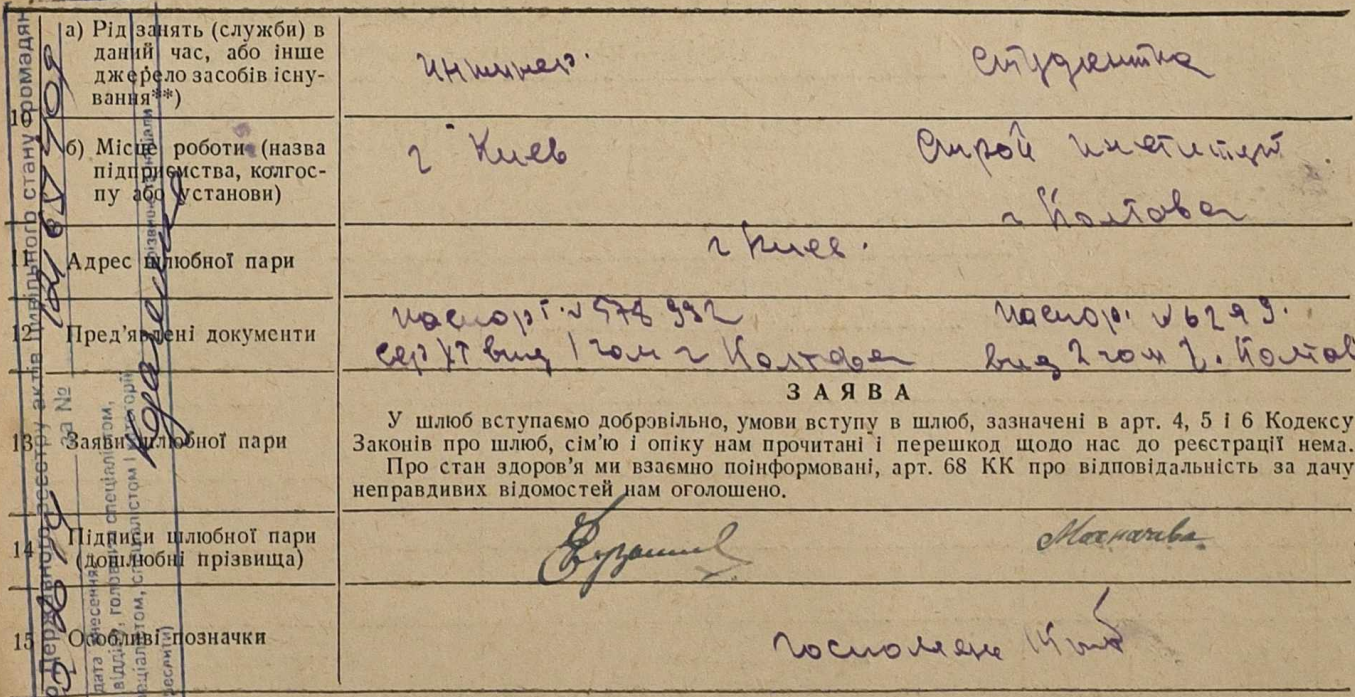 10
а) Рід занять (служби) в
даний час, або інше
джерело засобів існу-
вання**)
инжинер.
студентка
б) Місце роботи (назва
підприємства, колгос-
пу або установи)
г Киев
Строй институт
г Полтава
11
Адрес шлюбної пари
г Киев.
12
Пред'явлені документи
паспорт. № 578 992
сер XT выд 1 гом г Полтава
паспор. № 6299.
выд 2 гом г. Полтав
13
Заяви шлюбної пари
ЗАЯВА
У шлюб вступаємо добровільно, умови вступу в шлюб, зазначені в арт. 4, 5 і 6 Кодексу
Законів про шлюб, сім'ю і опіку нам прочитані і перешкод щодо нас до реєстрації нема.
Про стан здоров'я ми взаємно поінформовані, арт. 68 КК про відповідальність за дачу
неправдивих відомостей нам оголошено.
14
Підписи шлюбної пари
(дошлюбні прізвища)
15
Особливі позначки
Державного реєстру актів цивільного стану громадян
за №